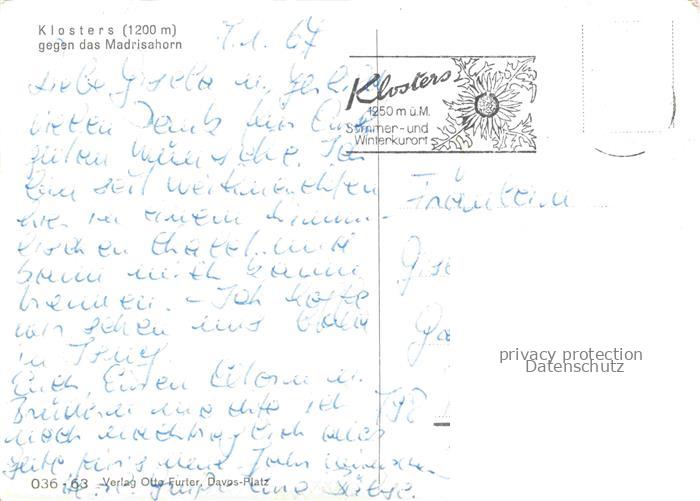 Klosters (1200 m)
gegen das Madrisahorn
7.1.67
Liebe Gisela u.
vielen Dank für Eure
guten Wünsche. Ich
bin seit Weihnachten
hier in einem himm-
lischen Chalet und
kann mich kaum
trennen. - Ich hoffe
wir sehen uns bald
in
Euch, Euren Eltern u.
Brüdern möchte ich
noch nachträglich alles
gute fürs neue Jahr wünschen
Klosters
1250 m ü.M.
Sommer- und
Winterkurort
Fräulein
Gise
privacy protection
Datenschutz
036 - 63 Verlag Otto Furter, Davos-Platz